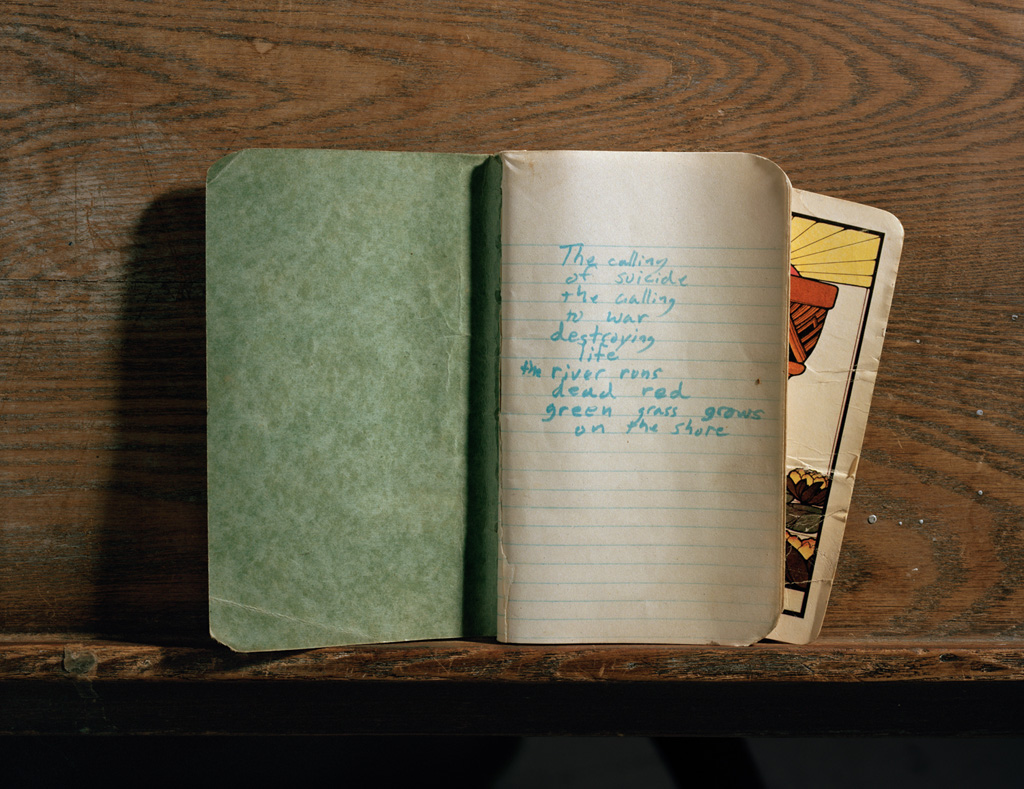 The calling
of suicide
the calling
to war
destroying
life
the river runs
dead red
green grass grows
on the shore